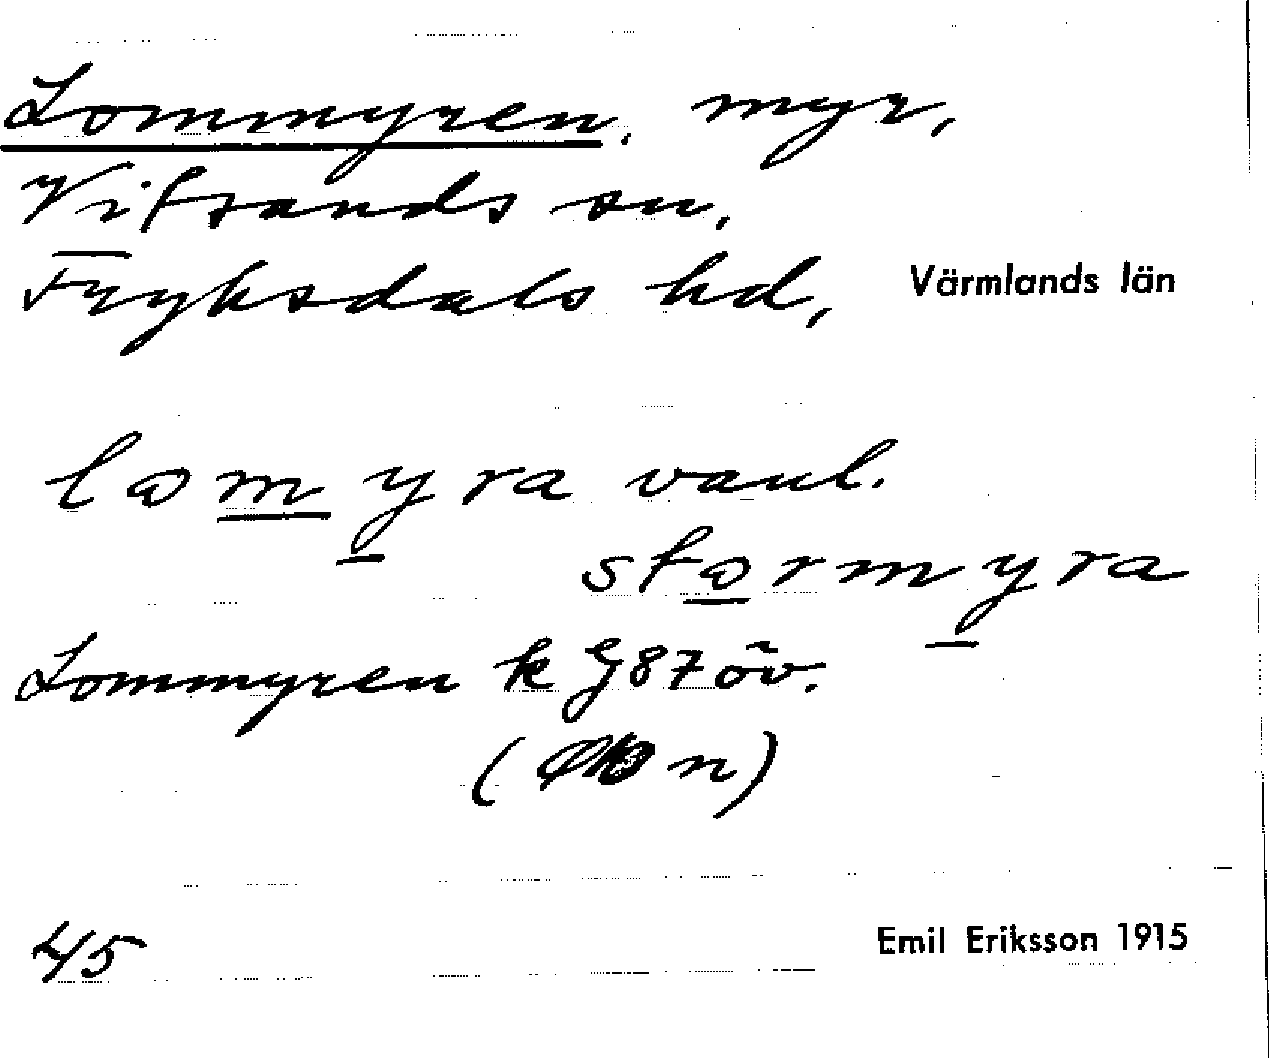 Lommyren, myr,
Vitsands sn,
Fryksdals hd, Värmlands län
lomyra vanl.
stormyra
Lommyren k G87öv.
( n)
45 Emil Eriksson 1915